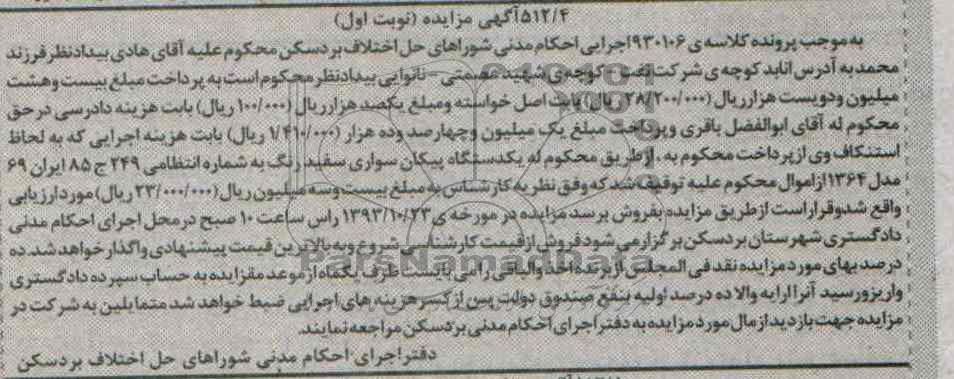 ۵۱۲/۴آگهی مزایده (نوبت اول)
به موجب پرونده کلاسه ی ۹۳۰۱۰۶اجرایی احکام مدنی شوراهای حل اختلاف بردسکن محکوم علیه آقای هادی بیدادنظر فرزند
محمد به آدرس انابد کوچه ی شرکت نفت - کوچه ی شهید عصمتی - نانوایی بیدادنظر محکوم است به پرداخت مبلغ بیست و هشت
میلیون و دویست هزار ریال (۲۸/۲۰۰/۰۰۰ ریال) بابت اصل خواسته و مبلغ یکصد هزار ریال (۱۰۰/۰۰۰ ریال) بابت هزینه دادرسی در حق
محکوم له آقای ابوالفضل باقری و پرداخت مبلغ یک میلیون و چهارصد و ده هزار (۱/۴۱۰/۰۰۰ ریال) بابت هزینه اجرایی که به لحاظ
استنکاف وی از پرداخت محکوم به ، از طریق محکوم له یکدستگاه پیکان سواری سفید رنگ به شماره انتظامی ۲۴۹ ج ۸۵ ایران ۶۹
مدل ۱۳۶۴ از اموال محکوم علیه توقیف شد که وفق نظریه کارشناس به مبلغ بیست و سه میلیون ریال (۲۳/۰۰۰/۰۰۰ ریال) مورد ارزیابی
واقع شد و قرار است از طریق مزایده بفروش برسد مزایده در مورخه ی ۱۳۹۳/۱۰/۲۳ راس ساعت ۱۰ صبح در محل اجرای احکام مدنی
دادگستری شهرستان بردسکن برگزار می شود فروش از قیمت کارشناسی شروع و به بالاترین قیمت پیشنهادی واگذار خواهد شد. ده
درصد بهای مورد مزایده نقد فی المجلس از برنده اخذ والباقی را می بایست ظرف یکماه از موعد مقر ایده به حساب سپرده دادگستری
واریز و رسید آنرا ارایه والا ده درصد اولیه بنفع صندوق دولت پس از کسر هزینه های اجرایی ضبط خواهد شد متمایلین به شرکت در
مزایده جهت بازدید از مال مورد مزایده به دفتر اجرای احکام مدنی بردسکن مراجعه نمایند.
دفتر اجرای احکام مدنی شوراهای حل اختلاف بردسکن
ParsNamadData